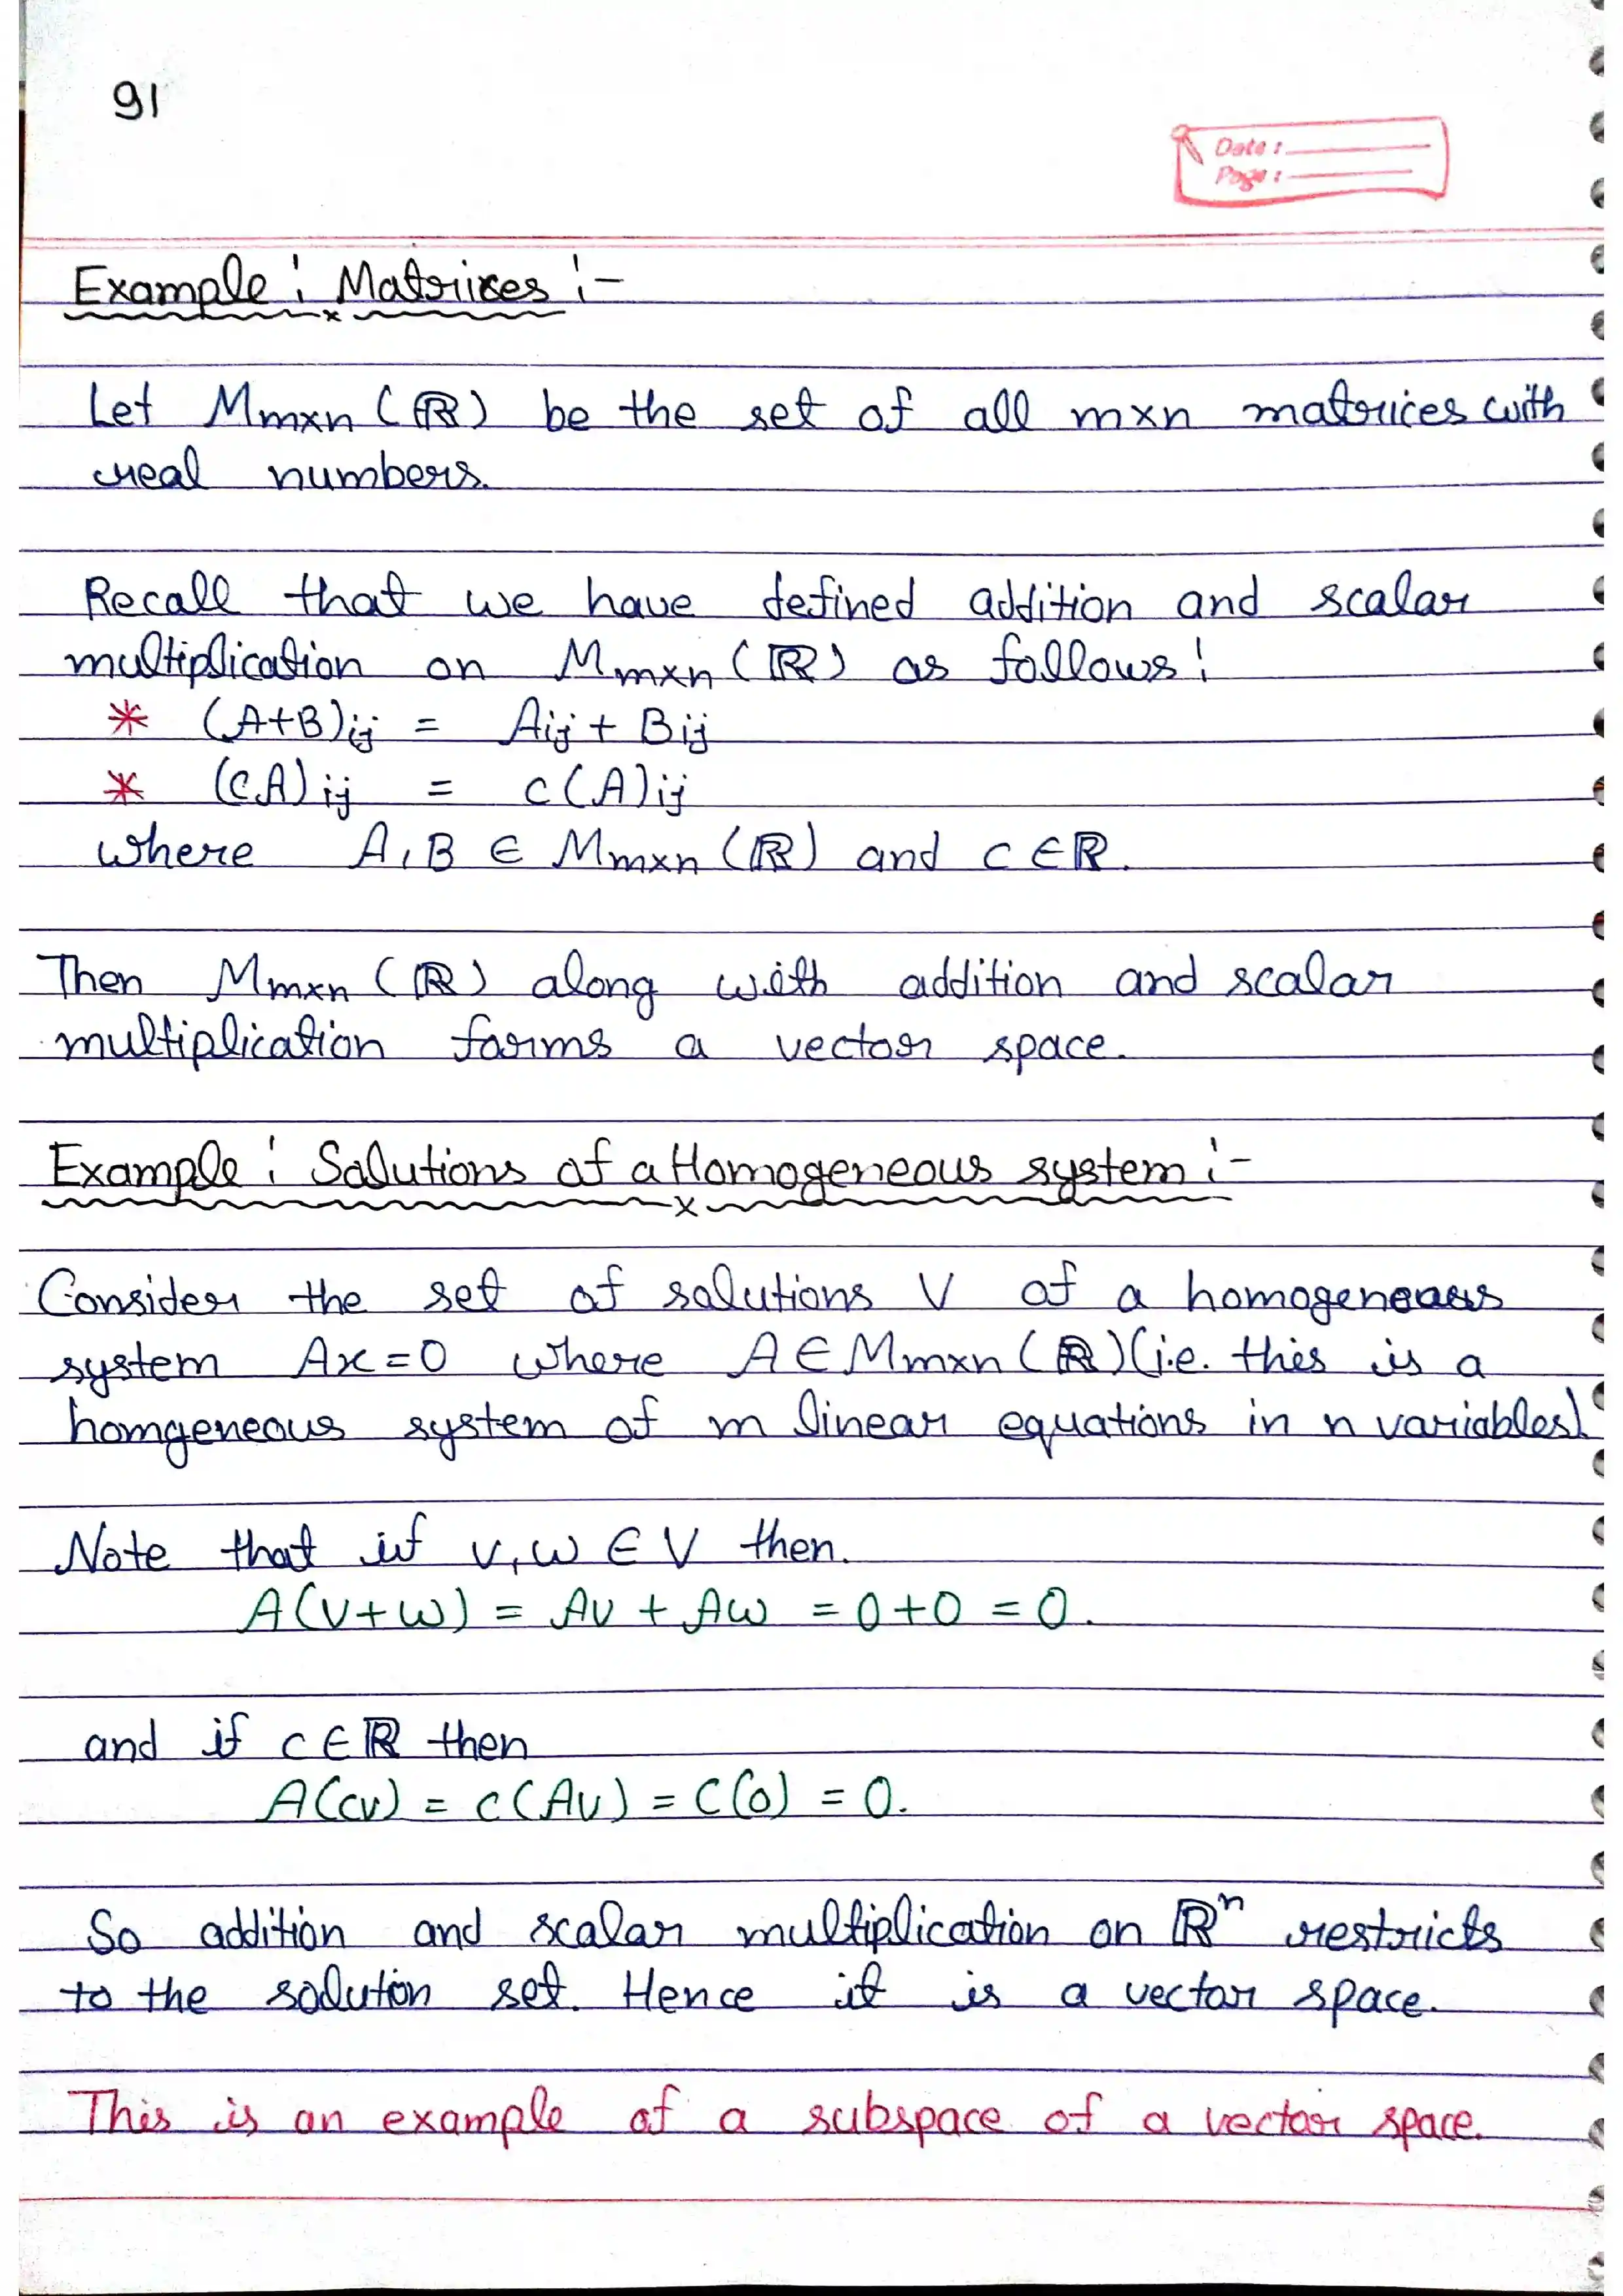 91
Date :
Page :
Example : Matrices :-
Let Mmxn (ℝ) be the set of all mxn matrices with
real numbers.
Recall that we have defined addition and scalar
multiplication on Mmxn (ℝ) as follows :
* (A+B)ij = Aij + Bij
* (cA)ij = c(A)ij
where A, B ∈ Mmxn (ℝ) and c ∈ ℝ.
Then Mmxn (ℝ) along with addition and scalar
multiplication forms a vector space.
Example : Solutions of a Homogeneous system :-
Consider the set of solutions V of a homogeneous
system Ax=0 where A ∈ Mmxn (ℝ) (i.e. this is a
homgeneous system of m linear equations in n variables).
Note that if v, w ∈ V then.
A(v+w) = Av + Aw = 0+0 = 0.
and if c ∈ ℝ then
A(cv) = c(Av) = c(0) = 0.
So addition and scalar multiplication on ℝⁿ restricts
to the solution set. Hence it is a vector space.
This is an example of a subspace of a vector space.